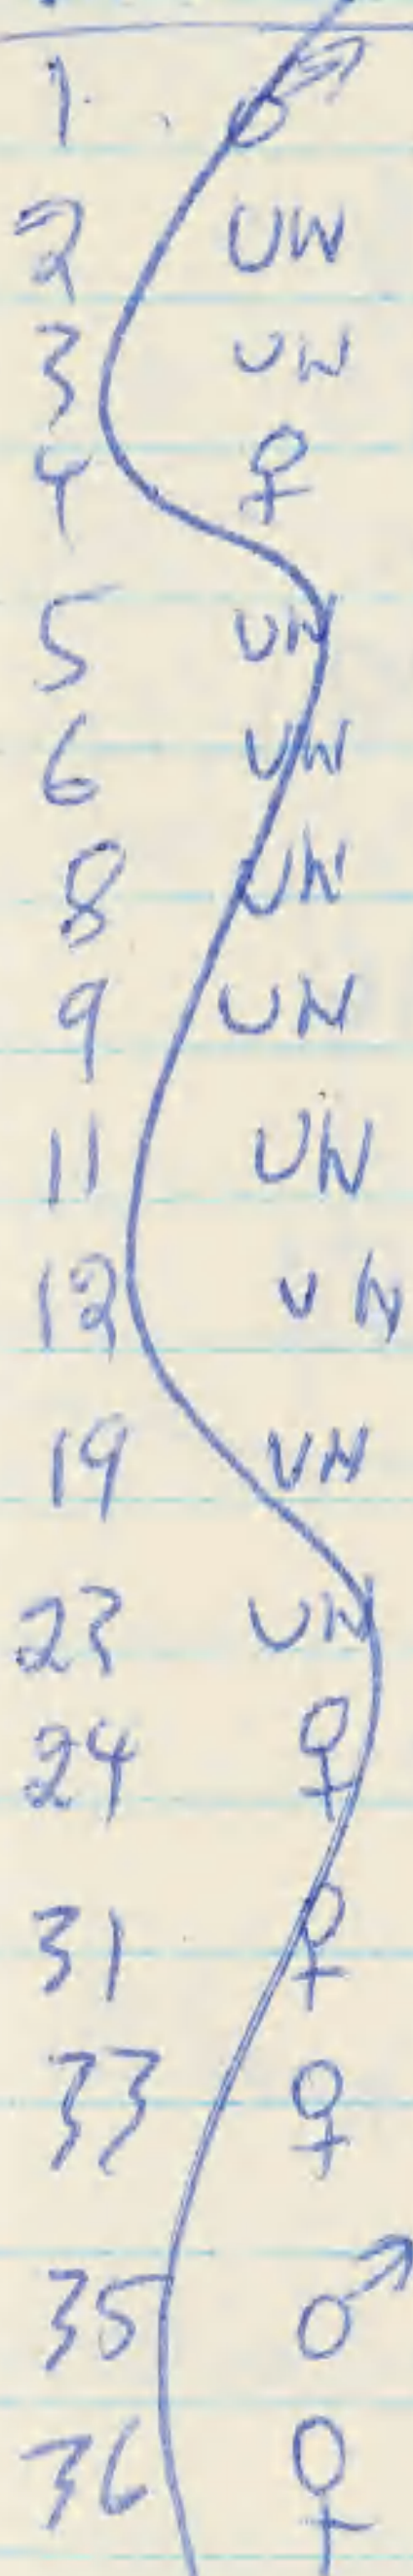 1 ♂
2 UW
3 UW
4 ♀
5 UN
6 UW
8 UN
9 UN
11 UN
12 UN
19 UN
23 UN
24 ♀
31 ♀
33 ♀
35 ♂
36 ♀